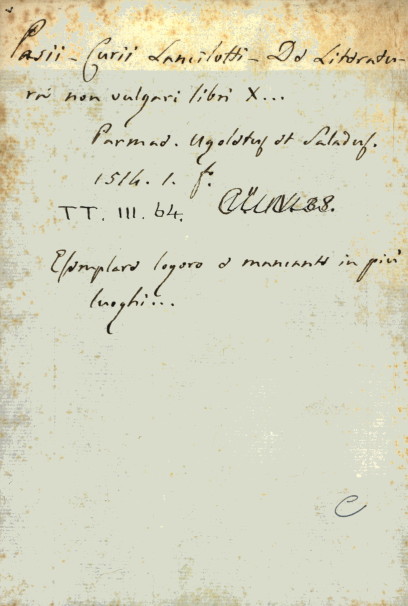 Pasii - Curii Lancilotti - De Literatu-
ra non vulgari libri X...
Parmae. Ugoletus et Saladus.
1514. 1. f.
TT. III. 64.
Esemplare logoro e mancante in più
luoghi...
C